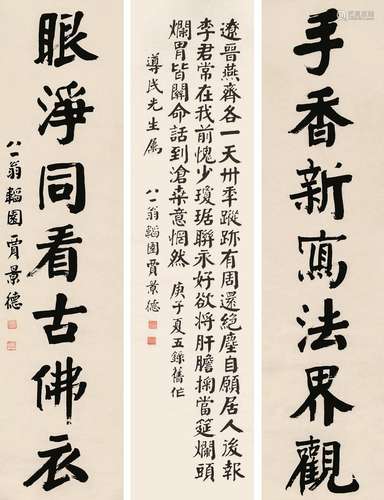 手香新寫法界觀
遼晉燕齊各一天卅季蹤跡有周還絕塵自願居人後報
李君常在我前愧少瓊琚聯永好欲將肝膽掬當筵爛頭
爛胃皆關命話到滄桑意惘然 庚子夏五錄舊作
導民先生屬
八一翁韜園賈景德
眼淨同看古佛衣
八一翁韜園賈景德